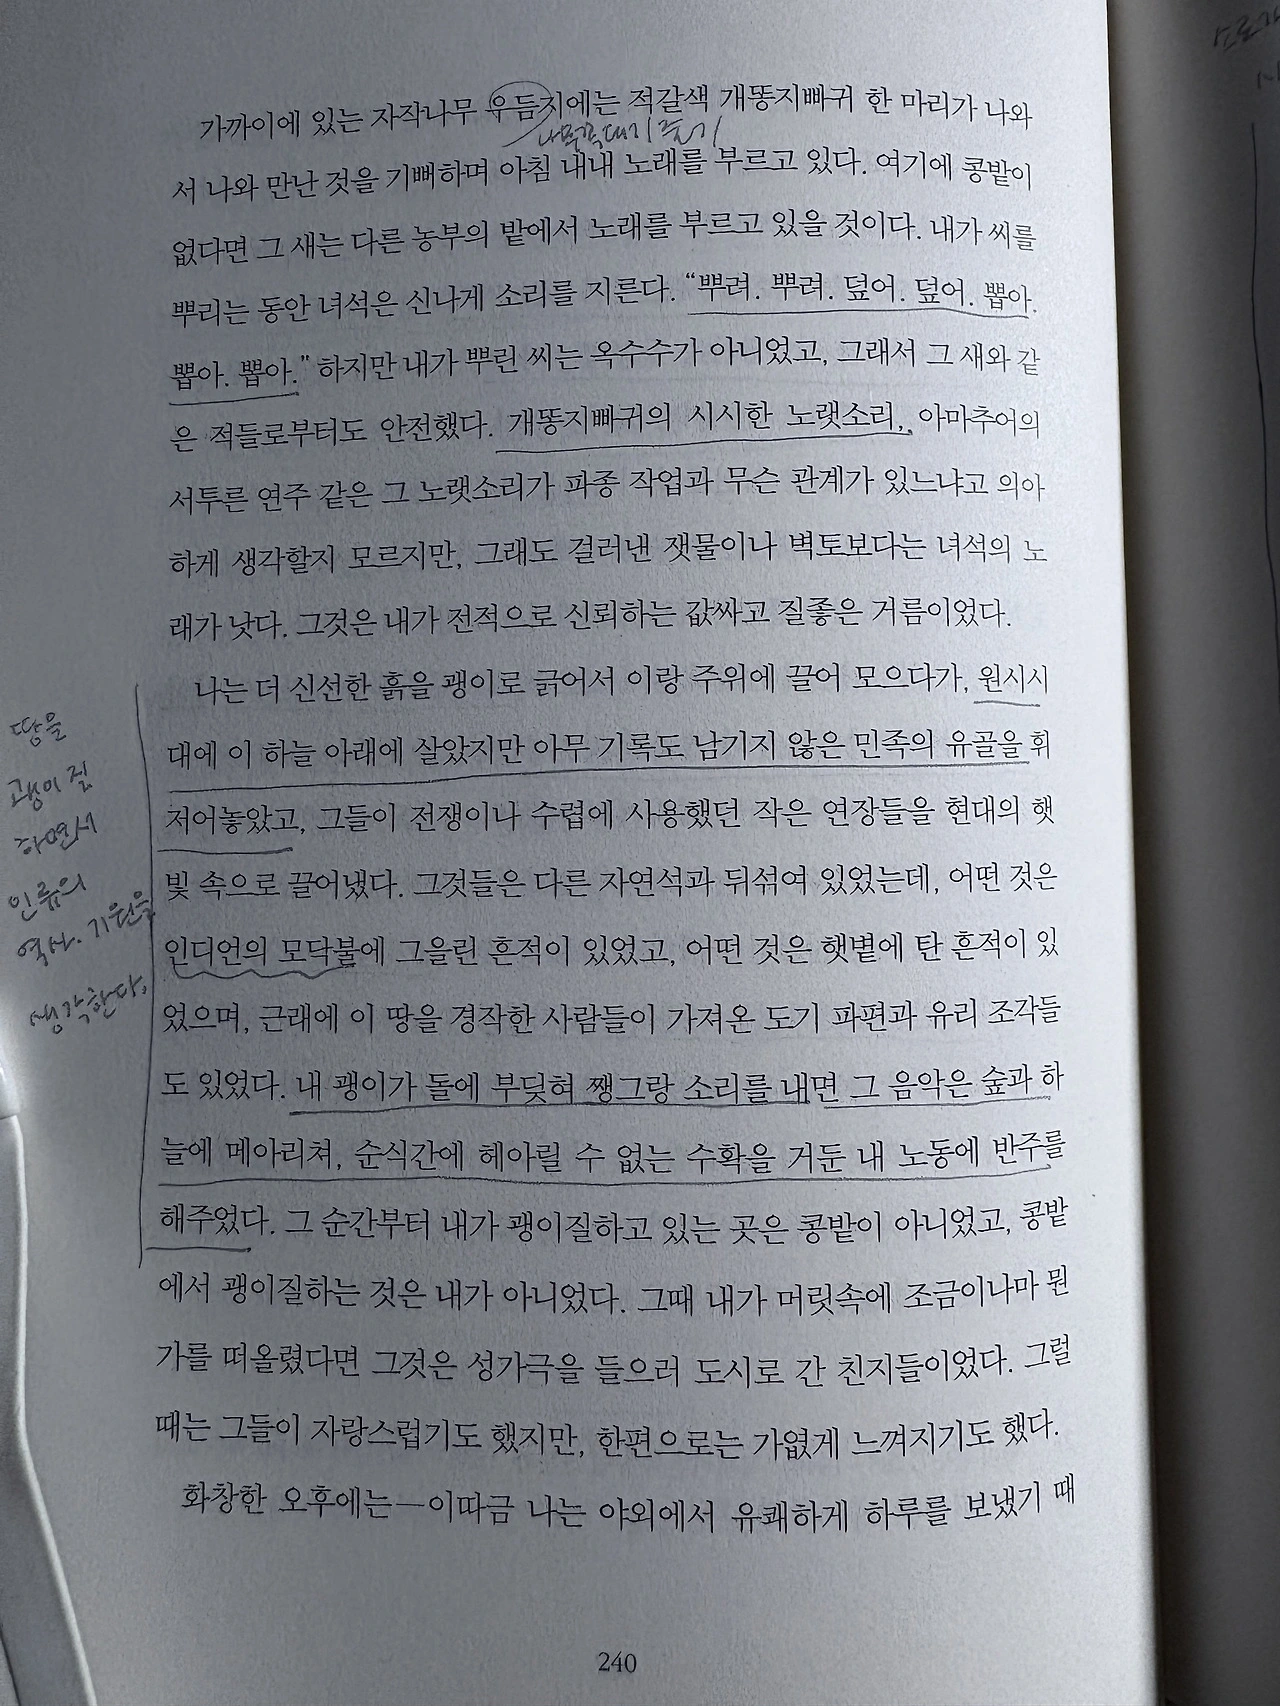 가까이에 있는 자작나무 우듬지에는 적갈색 개똥지빠귀 한 마리가 나와
나무꼭대기 줄기
서 나와 만난 것을 기뻐하며 아침 내내 노래를 부르고 있다. 여기에 콩밭이
없다면 그 새는 다른 농부의 밭에서 노래를 부르고 있을 것이다. 내가 씨를
뿌리는 동안 녀석은 신나게 소리를 지른다. “뿌려. 뿌려. 덮어. 덮어. 뽑아.
뽑아. 뽑아.” 하지만 내가 뿌린 씨는 옥수수가 아니었고, 그래서 그 새와 같
은 적들로부터도 안전했다. 개똥지빠귀의 시시한 노랫소리, 아마추어의
서투른 연주 같은 그 노랫소리가 파종 작업과 무슨 관계가 있느냐고 의아
하게 생각할지 모르지만, 그래도 걸러낸 잿물이나 벽토보다는 녀석의 노
래가 낫다. 그것은 내가 전적으로 신뢰하는 값싸고 질좋은 거름이었다.
나는 더 신선한 흙을 괭이로 긁어서 이랑 주위에 끌어 모으다가, 원시시
대에 이 하늘 아래에 살았지만 아무 기록도 남기지 않은 민족의 유골을 휘
저어놓았고, 그들이 전쟁이나 수렵에 사용했던 작은 연장들을 현대의 햇
빛 속으로 끌어냈다. 그것들은 다른 자연석과 뒤섞여 있었는데, 어떤 것은
인디언의 모닥불에 그을린 흔적이 있었고, 어떤 것은 햇볕에 탄 흔적이 있
었으며, 근래에 이 땅을 경작한 사람들이 가져온 도기 파편과 유리 조각들
도 있었다. 내 괭이가 돌에 부딪혀 쨍그랑 소리를 내면 그 음악은 숲과 하
늘에 메아리쳐, 순식간에 헤아릴 수 없는 수확을 거둔 내 노동에 반주를
해주었다. 그 순간부터 내가 괭이질하고 있는 곳은 콩밭이 아니었고, 콩밭
에서 괭이질하는 것은 내가 아니었다. 그때 내가 머릿속에 조금이나마 뭔
가를 떠올렸다면 그것은 성가극을 들으러 도시로 간 친지들이었다. 그럴
때는 그들이 자랑스럽기도 했지만, 한편으로는 가엾게 느껴지기도 했다.
화창한 오후에는—이따금 나는 야외에서 유쾌하게 하루를 보냈기 때
땅을
괭이질
하면서
인류의
역사. 기원을
생각한다.
240